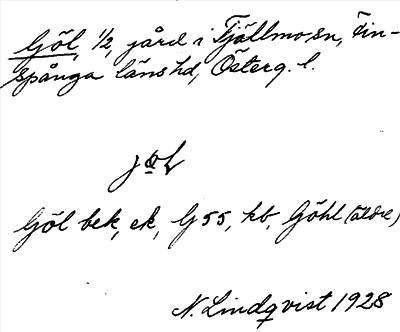 Göl, 1/2, gård i Tjällmo sn, Fin-
spånga länshd, Österg. l.
jöL
Göl bek, ek, G 55, kb, Göhl (äldre)
N. Lindqvist 1928